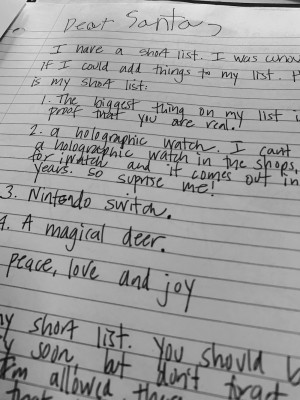 Dear Santa,
I have a short list. I was
if I could add things to my list.
is my short list:
1. The biggest thing on my list
proof that you are real.
2. a holographic watch. I cant
a holographic watch in the shops,
for iwatch and it comes out in
years. so suprise me!
3. Nintendo switch.
4. A magical deer.
peace, love and joy
my short list. You should
soon, but don't
I'm allowed